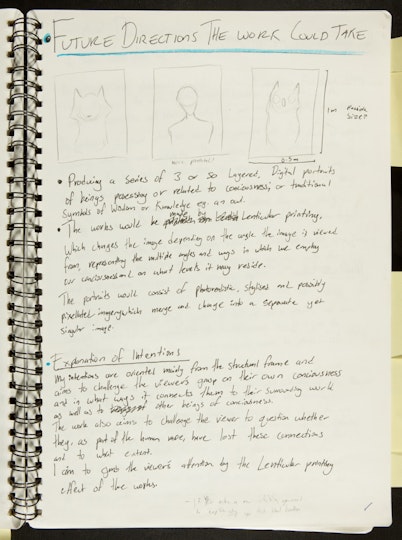 FUTURE DIRECTIONS THE WORK COULD TAKE
1m
Possible
Size?
0.5m
• Producing a series of 3 or so Layered, Digital portraits
of beings possessing or related to conciousness, or traditional
Symbols of Wisdom or Knowledge eg. an owl.
• The works would be made by Lenticular printing,
Which changes the image depending on the angle the image is viewed
from, representing the multiple angles and ways in which we employ
our conciousness and on what levels it may reside.
The portraits would consist of photorealistic, stylised and possibly
pixellated imagery which merge and change into a separate yet
singular image.
Explanation of Intentions
My intentions are oriented mainly from the structural frame and
aims to challenge the viewer's grasp on their own conciousness
and in what ways it connects them to their surrounding world
as well as to other beings of conciousness.
The work also aims to challenge the viewer to question whether
they, as part of the human race, have lost these connections
and to what extent.
I aim to grab the viewer's attention by the Lenticular printing
effect of the works.